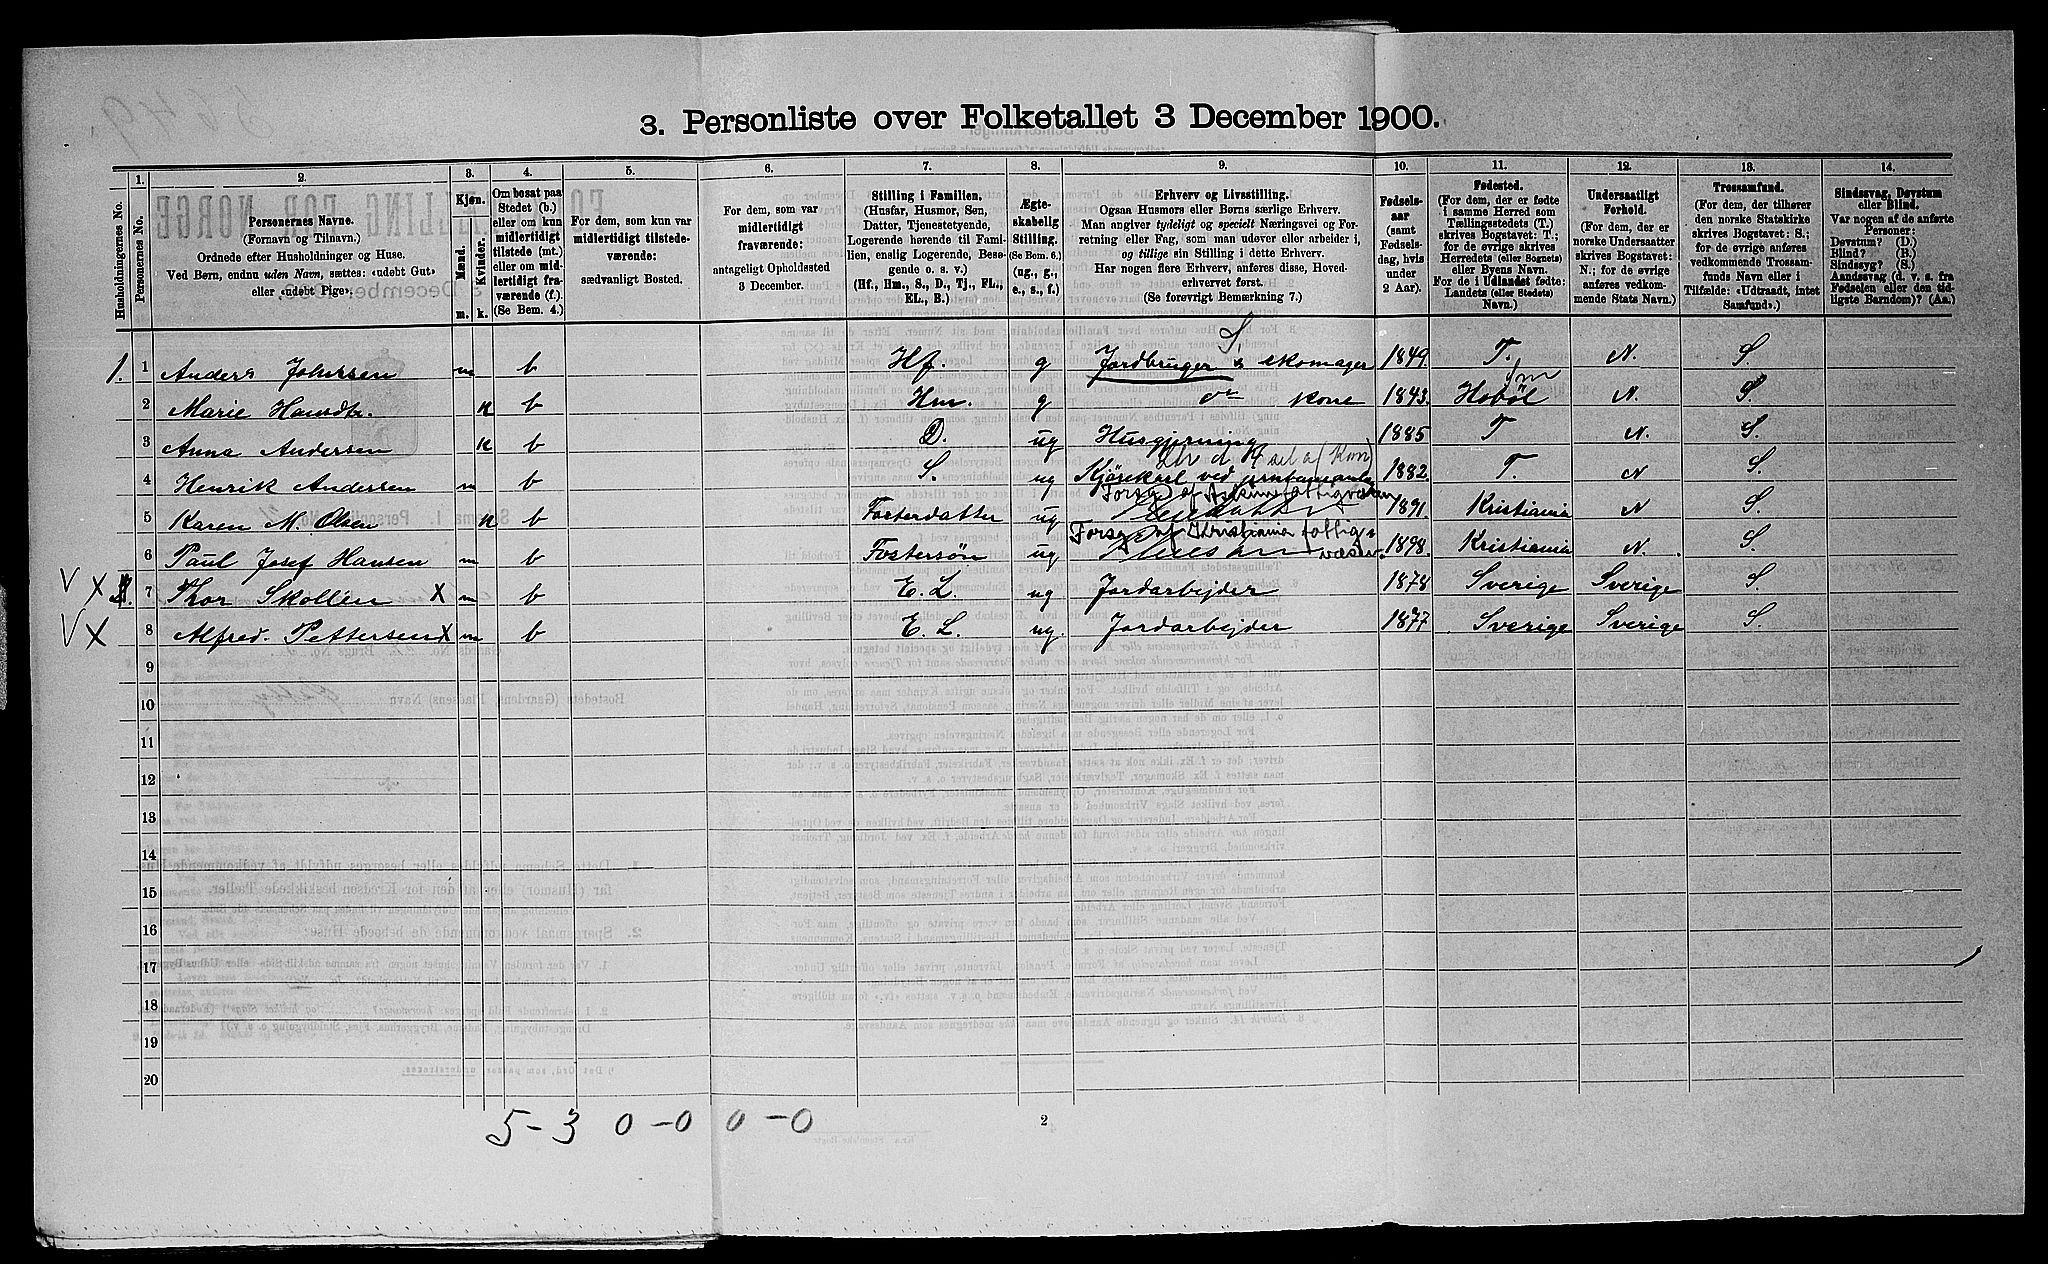 3. Personliste over Folketallet 3 December 1900.
Husholdningernes No.
1. Personernes No.
2. Personernes Navne.
(Fornavn og Tilnavn.)
Ordnede efter Husholdninger og Huse.
Ved Børn, endnu uden Navn, sættes: «udøbt Gut»
eller «udøbt Pige».
3. Kjøn.
Mænd. Kvinder.
m. k.
4. Om bosat paa
Stedet (b.)
eller om kun
midlertidigt
tilstede (mt.)
eller om mid-
lertidigt fra-
værende (f.).
(Se Bem. 4.)
5. For dem, som kun var
midlertidigt tilstede-
værende:
sædvanligt Bosted.
6. For dem, som var
midlertidigt
fraværende:
antageligt Opholdssted
3 December.
7. Stilling i Familien.
(Husfar, Husmor, Søn,
Datter, Tjenestetyende,
Logerende hørende til Fami-
lien, enslig Logerende, Besø-
gende o. s. v.)
(Hf., Hm., S., D., Tj., FL.,
EL., B.)
8. Ægte-
skabelig
Stilling.
(Se Bem. 6.)
(ug., g.,
e., s., f.)
9. Erhverv og Livsstilling.
Ogsaa Husmors eller Børns særlige Erhverv.
Man angiver tydeligt og specielt Næringsvei og For-
retning eller Fag, som man udøver eller arbeider i,
og tillige sin Stilling i dette Erhverv.
Har nogen flere Erhverv, anføres disse, Hoved-
erhvervet først.
(Se forøvrigt Bemærkning 7.)
10. Fødsels-
aar
(samt
Fødsels-
dag, hvis
under
2 Aar).
11. Fødested.
(For dem, der er fødte
i samme Herred som
Tællingsstedets (T.)
skrives Bogstavet: T.;
for de øvrige skrives
Herredets (eller Sognets)
eller Byens Navn.
For de i Udlandet fødte:
Landets (eller Stedets)
Navn.)
12. Undersaatligt
Forhold.
(For dem, der er
norske Undersaatter
skrives Bogstavet:
N.; for de øvrige
anføres vedkom-
mende Stats Navn.)
13. Trossamfund.
(For dem, der tilhører
den norske Statskirke
skrives Bogstavet: S.;
for de øvrige anføres
vedkommende Trossam-
funds Navn eller i
Tilfælde: «Udtraadt, intet
Samfund».)
14. Sindssvag, Døvstum
eller Blind.
Var nogen af de anførte
Personer:
Døvstum? (D.)
Blind? (B.)
Sindssyg? (S.)
Aandssvag (d. v. s. fra
Fødselen eller den tid-
ligste Barndom)? (Aa.)
1. 1 Anders Johnsen m b Hf. g Jordbruger & skomager S. 1849. T. N. S.
2 Marie Hansdtr. k b Hm. g kone 1843. Hobøl N. S.
3 Anna Andersen k b D. ug Husgjerning 1885 T N. S.
4 Henrik Andersen m b S. ug Kjørekarl ved 1882. T. N S.
5 Karen M. Olsen k b Fosterdatter ug Forsø. af 1891. Kristiania N S.
6 Paul Josef Hansen m b Fostersøn ug. Forsø. af Christiania fattig- væsen. 1898. Kristiania N. S.
V X 7 Thor Skollen X m b E. L. ug Jordarbejder 1878 Sverige Sverige S.
V X 8 Alfred. Pettersen X m b E L. ug. Jordarbejder 1877 Sverige Sverige S.
9
10
11
12
13
14
15
16
17
18
19
20
5-3 0-0 0-0
2